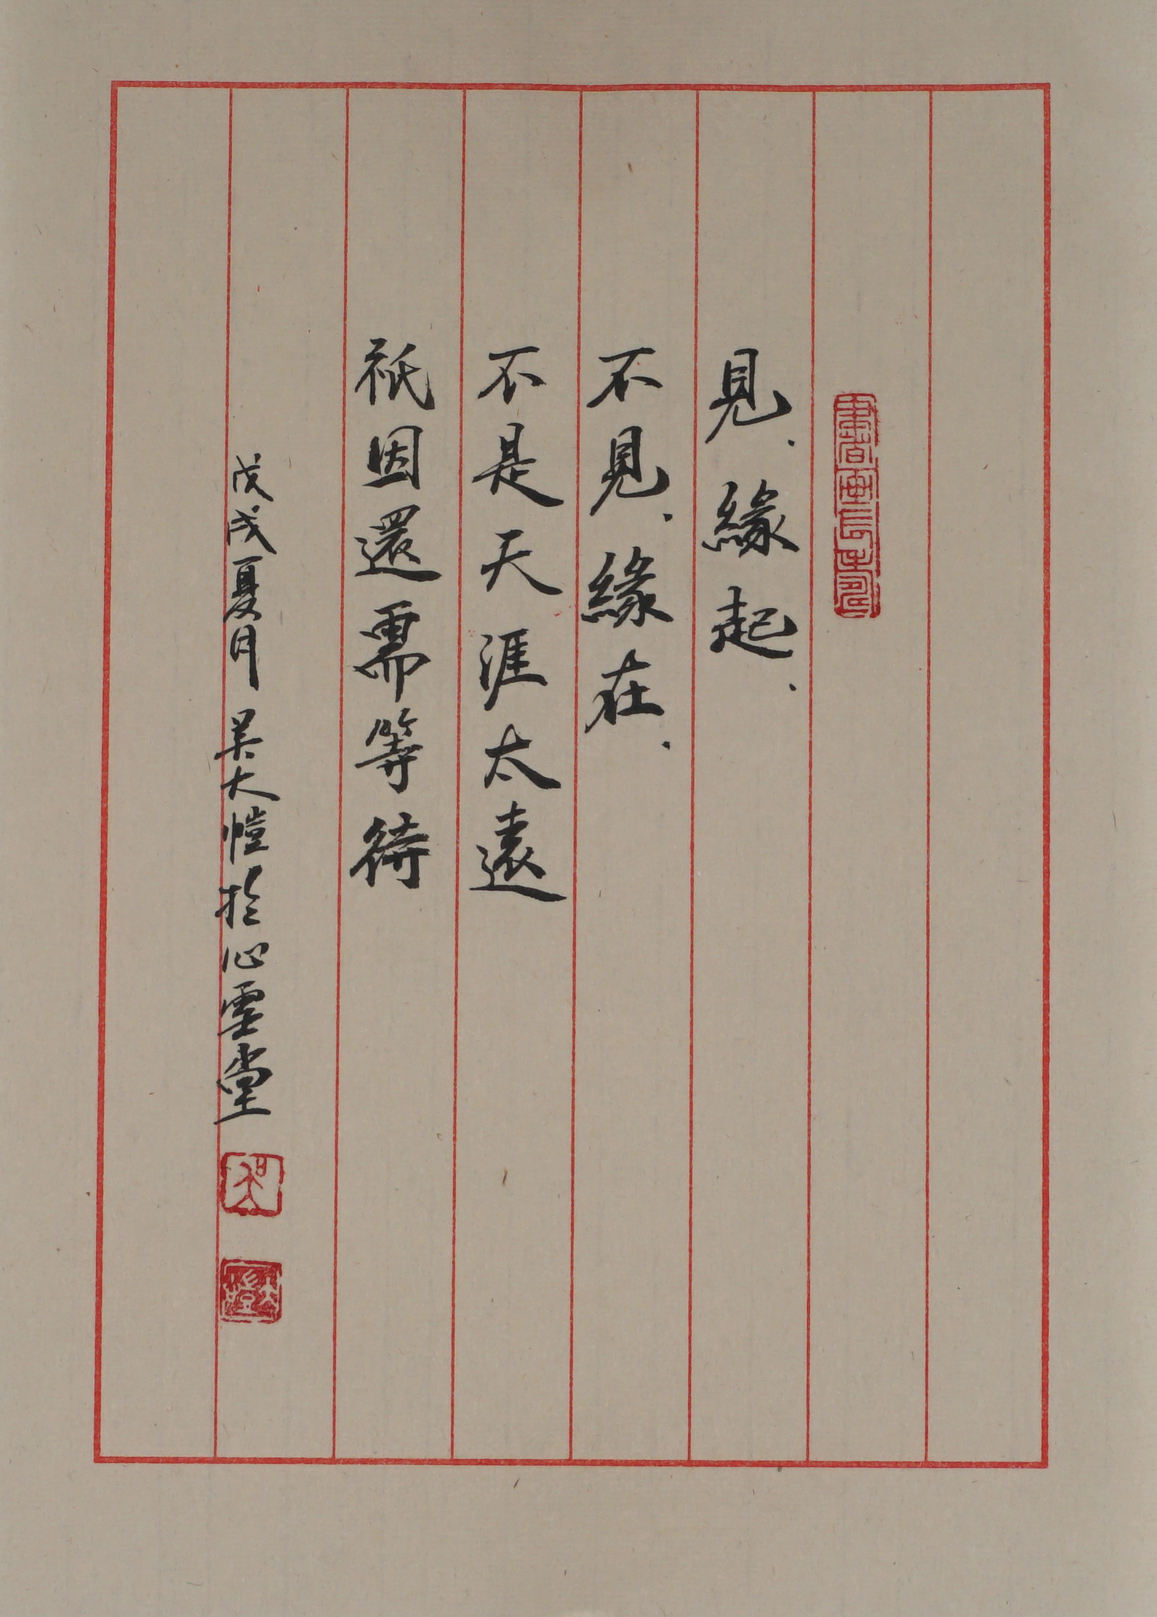 見．緣起．
不見．緣在．
不是天涯太遠
祇因還需等待
戊戌夏月 吴大愷於心雲堂